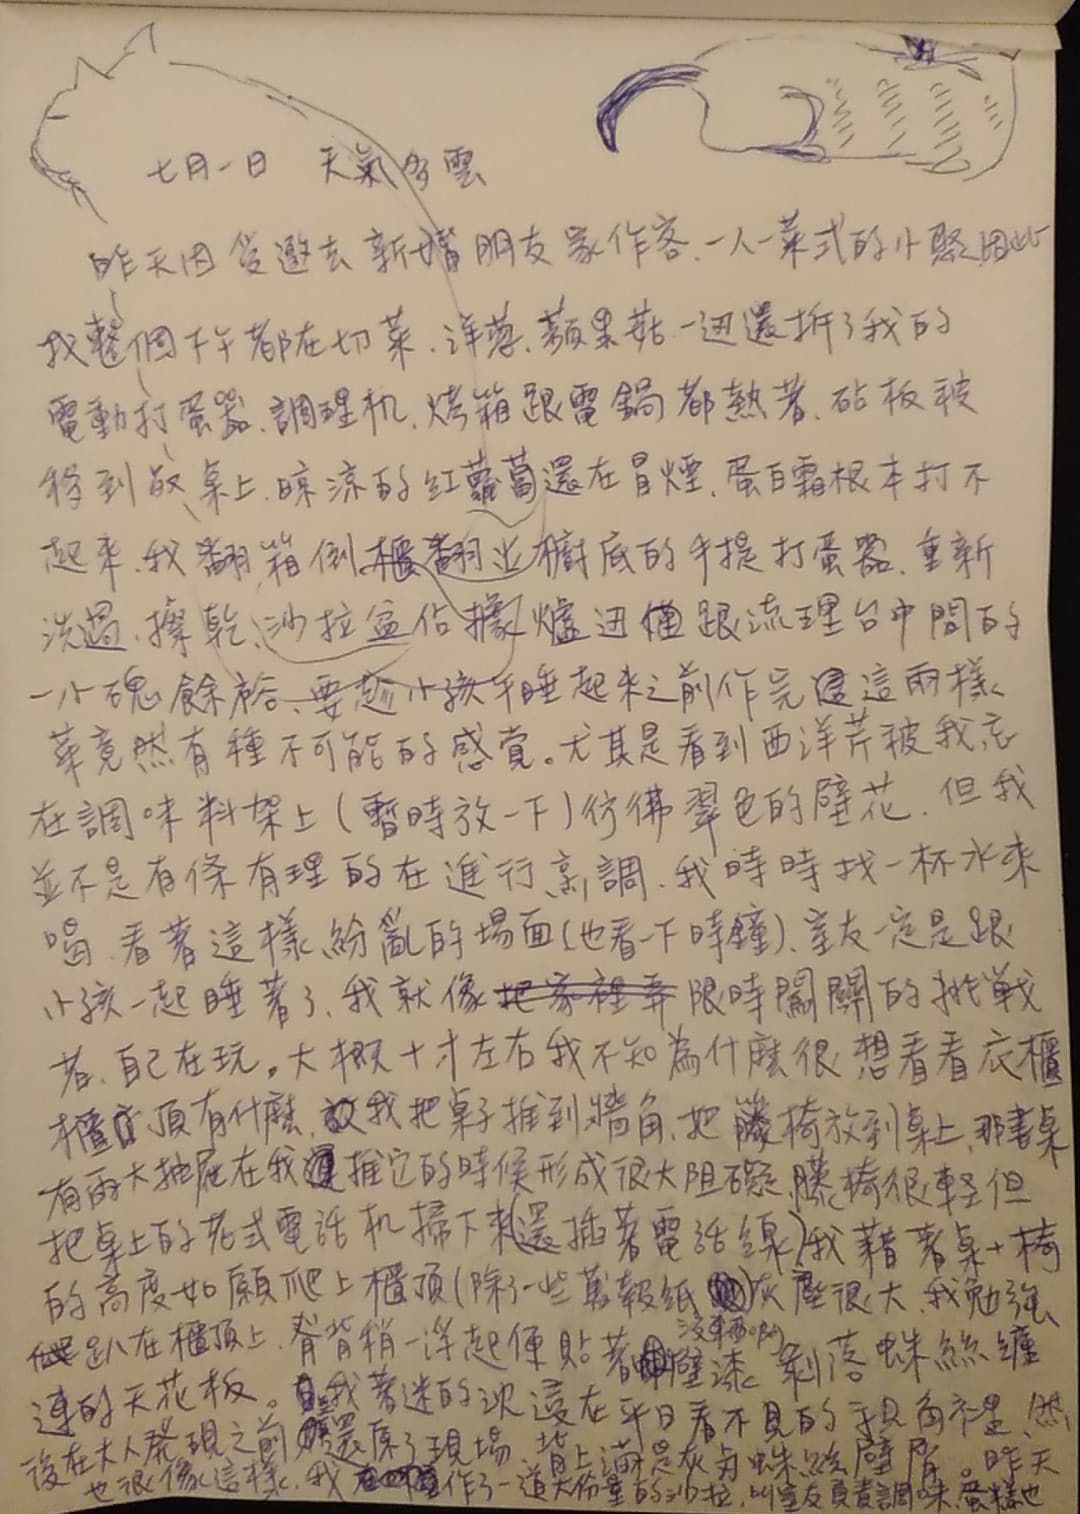 七月一日 天氣多雲
昨天因受邀去新婚朋友家作客、一人一菜式的小聚,因此
我整個下午都在切菜、洋蔥、蘋果菇、一邊還拆了我的
電動打蛋器、調理机、烤箱跟電鍋都熱著、砧板被
移到餐桌上、晾涼的紅蘿蔔還在冒煙、蛋白霜根本打不
起來、我翻箱倒櫃翻出櫥底的手提打蛋器、重新
洗過、擦乾、沙拉盆佔據爐邊跟流理台中間的
一小塊餘裕、要趁小孩午睡起來之前作完這兩樣
菜竟然有種不可能的感覺。尤其是看到西洋芹被我忘
在調味料架上(暫時放一下)彷彿翠色的壁花、但我
並不是有條有理的在進行烹調、我時時找一杯水來
喝、看著這樣紛亂的場面(也看一下時鐘)、室友一定是跟
小孩一起睡著了、我就像把家裡弄限時闖關的挑戰
者、自己在玩。大概十才左右我不知為什麼很想看看衣櫃
櫃頂有什麼、我把桌子推到牆角、把藤椅放到桌上、那書桌
有兩大抽屜在我推它的時候形成很大阻礙、藤椅很輕但
把桌上的老式電話机掃下來(還插著電話線)我藉著桌+椅
的高度如願爬上櫃頂(除了一些舊報紙沒東西啊)灰塵很大、我勉強
趴在櫃頂上、脊背稍一浮起便貼著壁漆剝落蛛絲纏
連的天花板。我著迷的沈浸在平日看不見的視角裡、然
後在大人發現之前還原了現場、背上滿是灰与蛛絲壁屑。昨天
也很像這樣、我作了一道大份量的沙拉、叫室友負責調味、蛋糕也